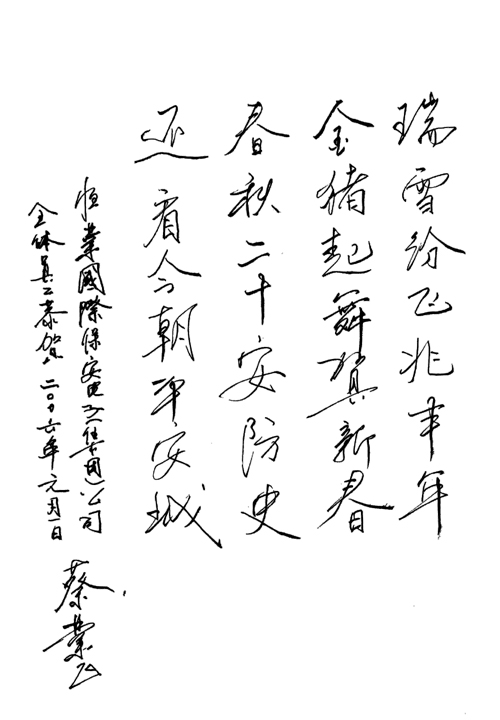 瑞雪纷飞兆丰年
金猪起舞贺新春
春秋二十安防史
迎看今朝平安城
恒業國際保安电子(集团)公司
全体員工恭贺 二〇〇六年元月一日
蔡業飞